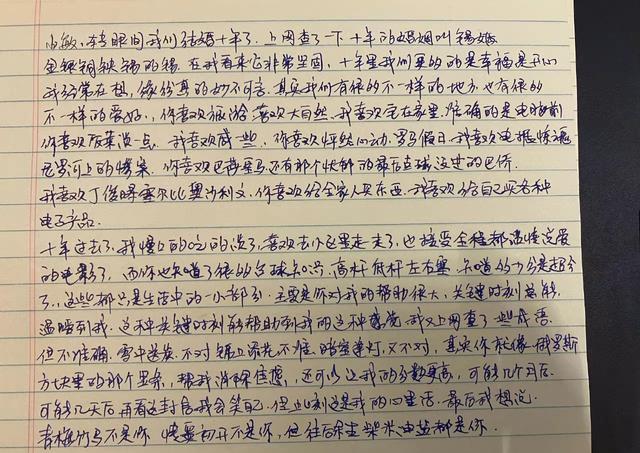 小敏，转眼间我们结婚十年了。上网查了一下十年的婚姻叫锡婚
金银铜铁锡的锡。在我看来它非常坚固，十年里我们更多的是幸福是开心
我经常在想，缘分真的妙不可言。其实我们有很多不一样的地方也有很多
不一样的爱好，你喜欢旅游喜欢大自然，我喜欢宅在家里，准确的是电脑前
你喜欢饭菜淡一点，我喜欢咸一些，你喜欢怦然心动，罗马假日，我喜欢电锯惊魂
尼罗河上的惨案，你喜欢巴蒂罗马还有那个忧郁的最后点球没进的巴乔
我喜欢丁俊晖塞尔比奥沙利文，你喜欢给全家人买东西，我喜欢给自己买各种
电子产品。
十年过去了，我慢慢的吃的淡了，喜欢去小区里走走了，也接受全程都温情浪漫
的电影了，而你也知道了很多台球知识，高杆低杆左右塞，知道的147是超分
了，这些都只是生活中的一小部分，主要是你对我的帮助很大，关键时刻总能
温暖到我，这种关键时刻能帮助到我的这种感觉，我又上网查了一些成语
但不准确，雪中送炭，不对，锦上添花，不准，暗室逢灯，又不对，其实你就像俄罗斯
方块里的那个竖条，帮我消除焦虑，还可以让我的分数更高，可能几个月后
可能几天后再看这封信我会笑自己，但此刻这是我的心里话，最后我想说
青梅竹马不是你，情窦初开不是你，但往后余生柴米油盐都是你。